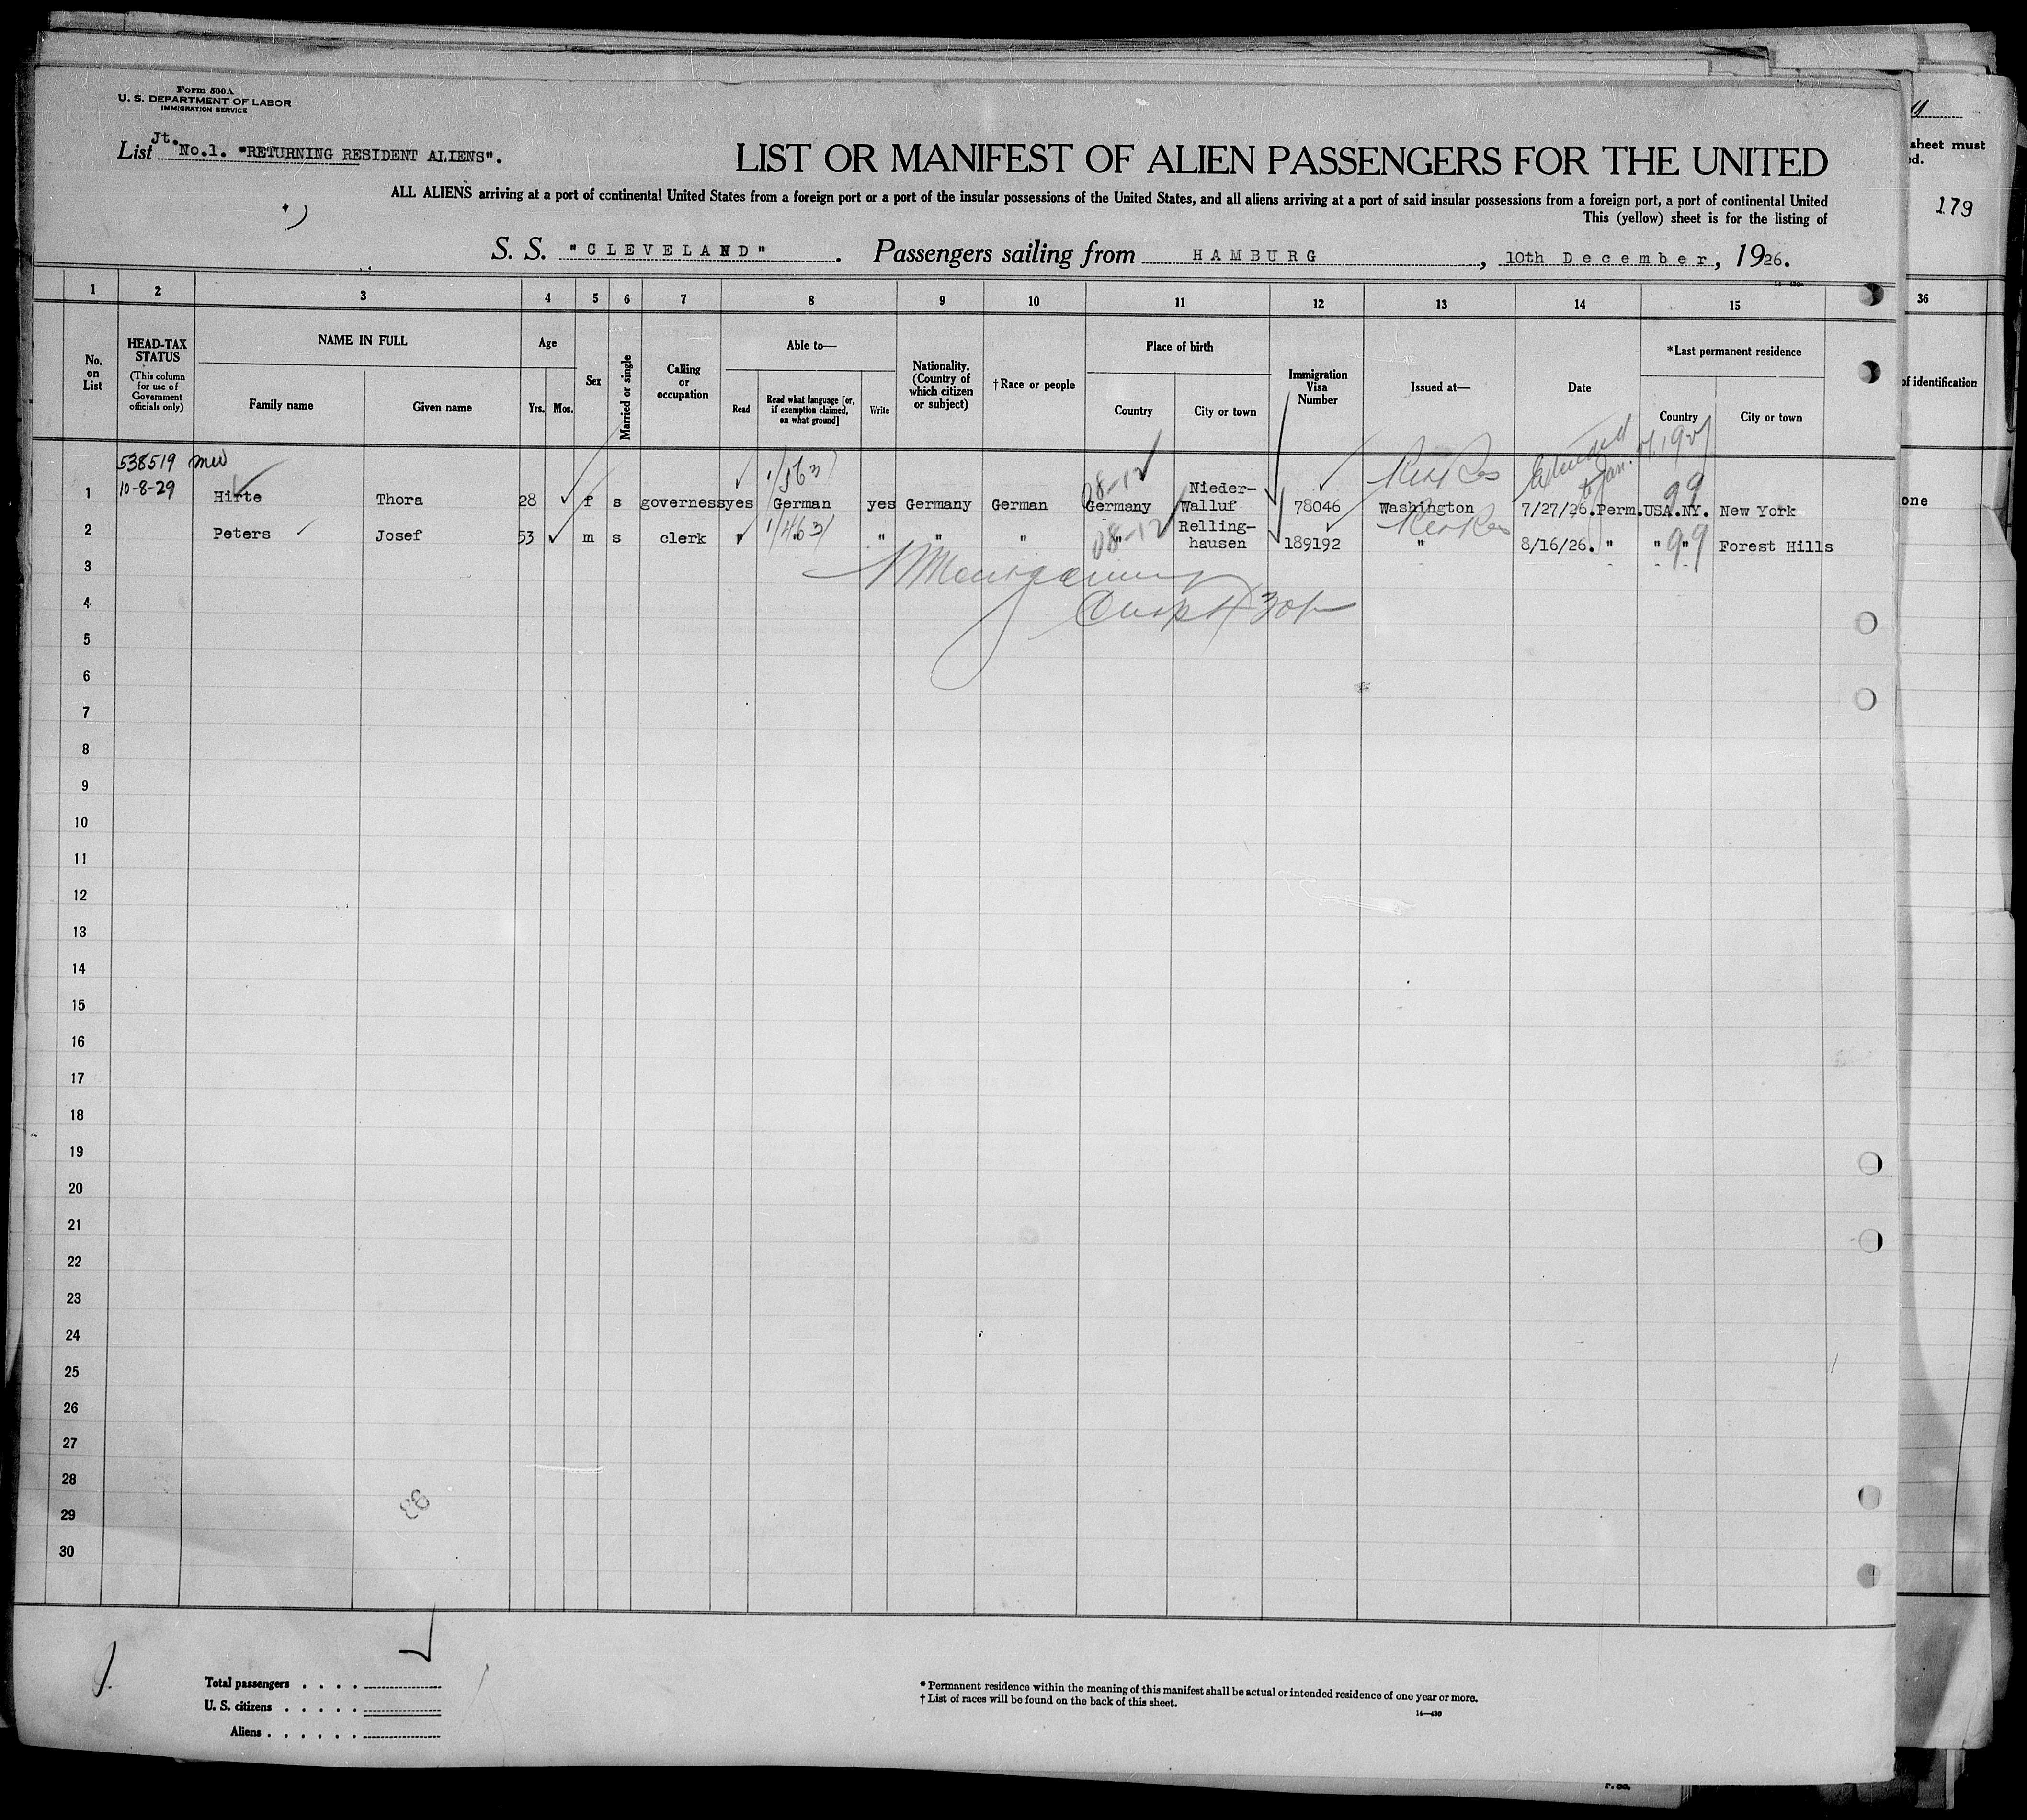 Form 500A
U. S. DEPARTMENT OF LABOR
IMMIGRATION SERVICE
List Jt. No.1. "RETURNING RESIDENT ALIENS".
LIST OR MANIFEST OF ALIEN PASSENGERS FOR THE UNITED
ALL ALIENS arriving at a port of continental United States from a foreign port or a port of the insular possessions of the United States, and all aliens arriving at a port of said insular possessions from a foreign port, a port of continental United
This (yellow) sheet is for the listing of
S. S. "CLEVELAND". Passengers sailing from HAMBURG, 10th December, 1926.
sheet must
ed.
179
1 2 3 4 5 6 7 8 9 10 11 12 13 14 15 36
No. on List
HEAD-TAX STATUS
(This column for use of Government officials only)
NAME IN FULL
Family name
Given name
Age
Yrs. Mos.
Sex
Married or single
Calling or occupation
Able to—
Read
Read what language [or, if exemption claimed, on what ground]
Write
Nationality. (Country of which citizen or subject)
†Race or people
Place of birth
Country
City or town
Immigration Visa Number
Issued at—
Date
*Last permanent residence
Country
City or town
of identification
538519
10-8-29
Extended to Jan. 1927
1 Hirte Thora 28 f s governess yes German yes Germany German Germany Nieder-Walluf 78046 Washington 7/27/26. Perm. USA.NY. New York
one
08-12
99
2 Peters Josef 53 m s clerk " " " " " " Relling-hausen 189192 " 8/16/26. " " " Forest Hills
08-12
99
3
4
5
6
7
8
9
10
11
12
13
14
15
16
17
18
19
20
21
22
23
24
25
26
27
28
29
30
Total passengers
U. S. citizens
Aliens
* Permanent residence within the meaning of this manifest shall be actual or intended residence of one year or more.
† List of races will be found on the back of this sheet.
14—430